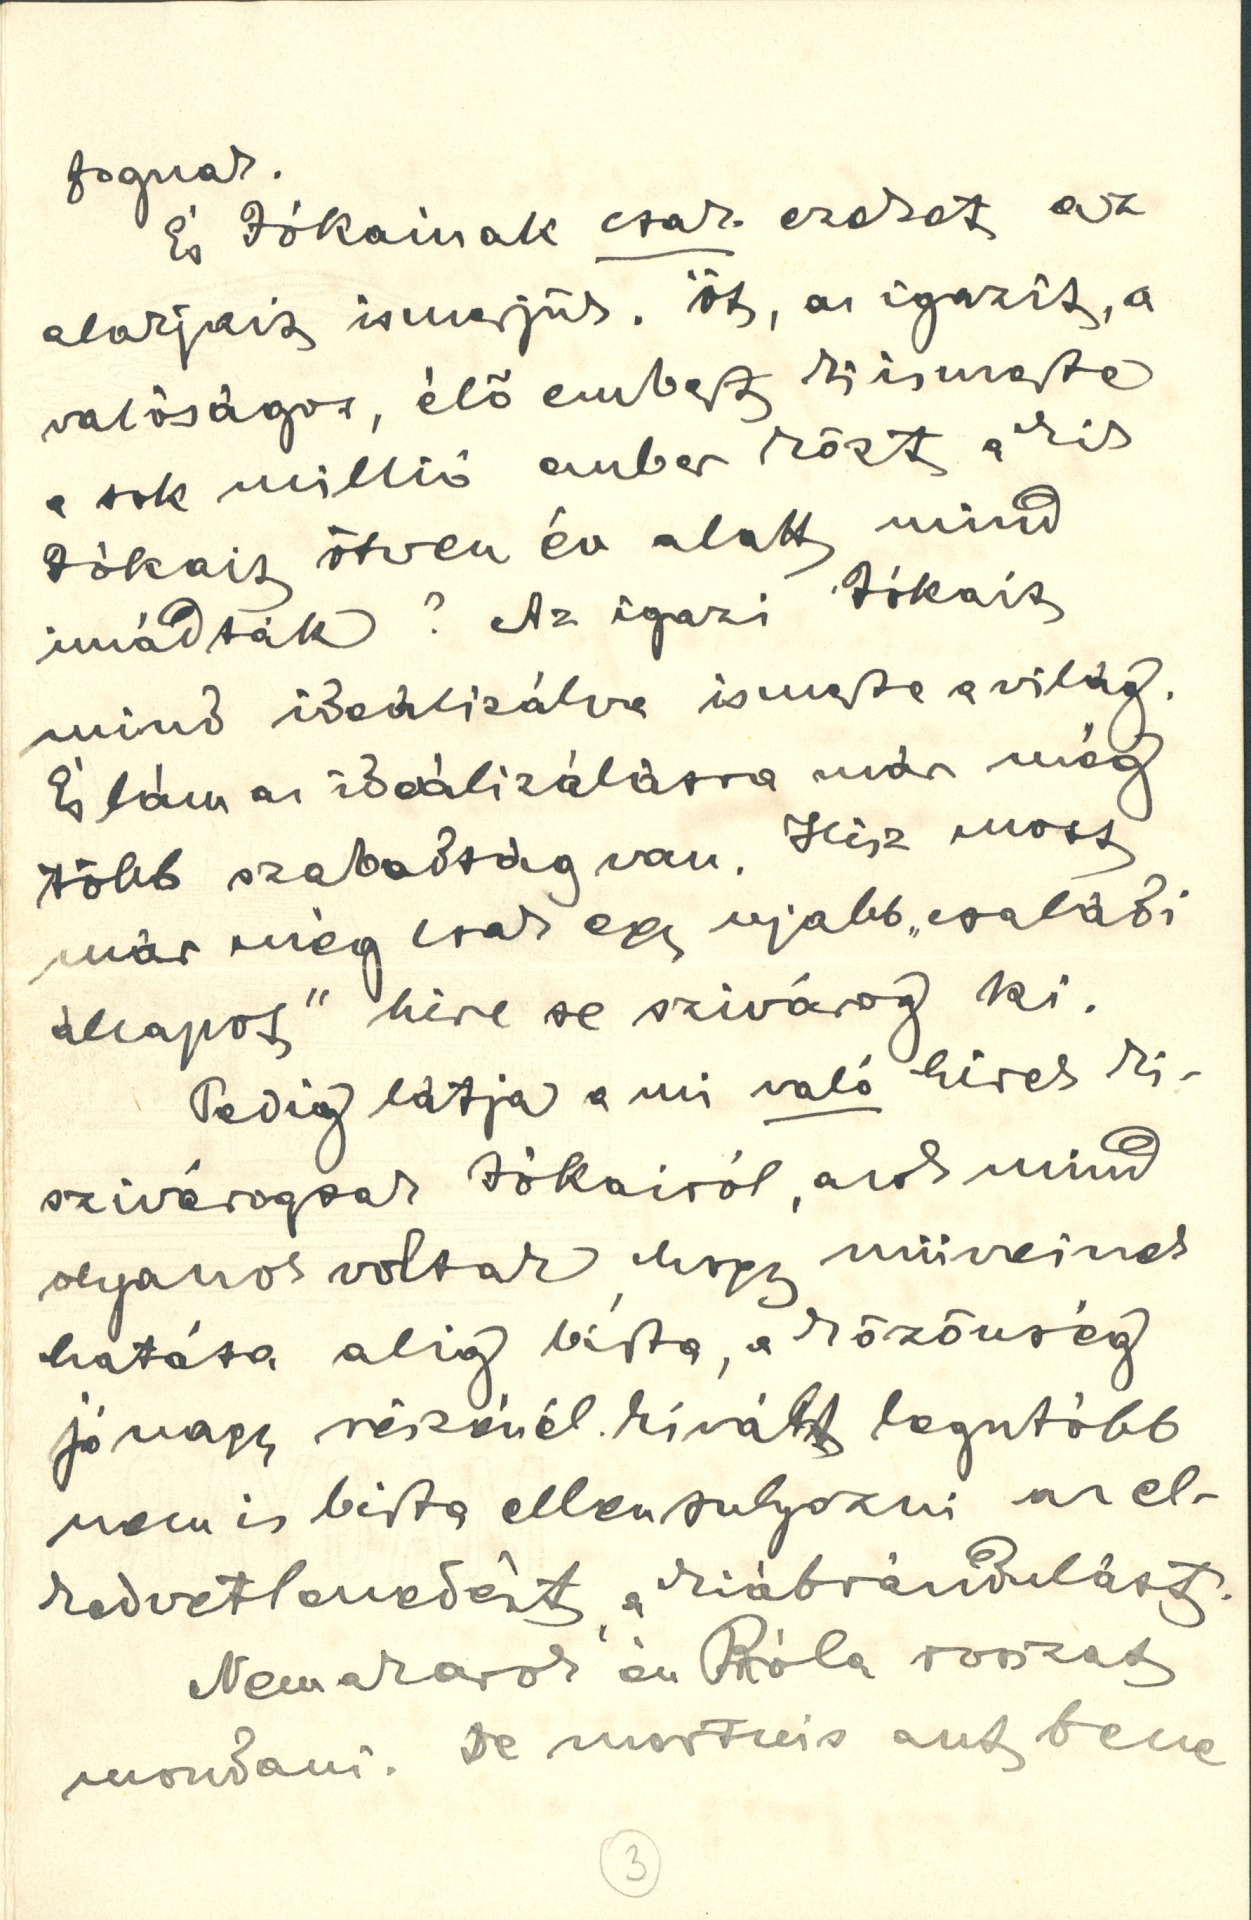 fognak.
És Jókainak csak ezeket az
alakjait ismerjük. Őt, az igazit, a
valóságos, élő embert ki ismerte
a sok millió ember közt, a kik
Jókait ötven év alatt mind
imádták? Az igazi Jókait
mind ideálizálva ismerte a világ.
És lám az ideálizálásra már még
több szabadság van. Hisz most
már még csak egy ujabb „családi
állapot" hire se szivárog ki.
Pedig látja a mi való hirek ki-
szivárogtak Jókairól, azok mind
olyanok voltak, hogy műveinek
hatása alig birta, a közönség
jó nagy részénél kivált legutóbb
nem is birta ellensulyozni az el-
kedvetlenedést, a kiábrándulást.
Nem akarok én Róla rosszat
mondani. De mortuis aut bene
3